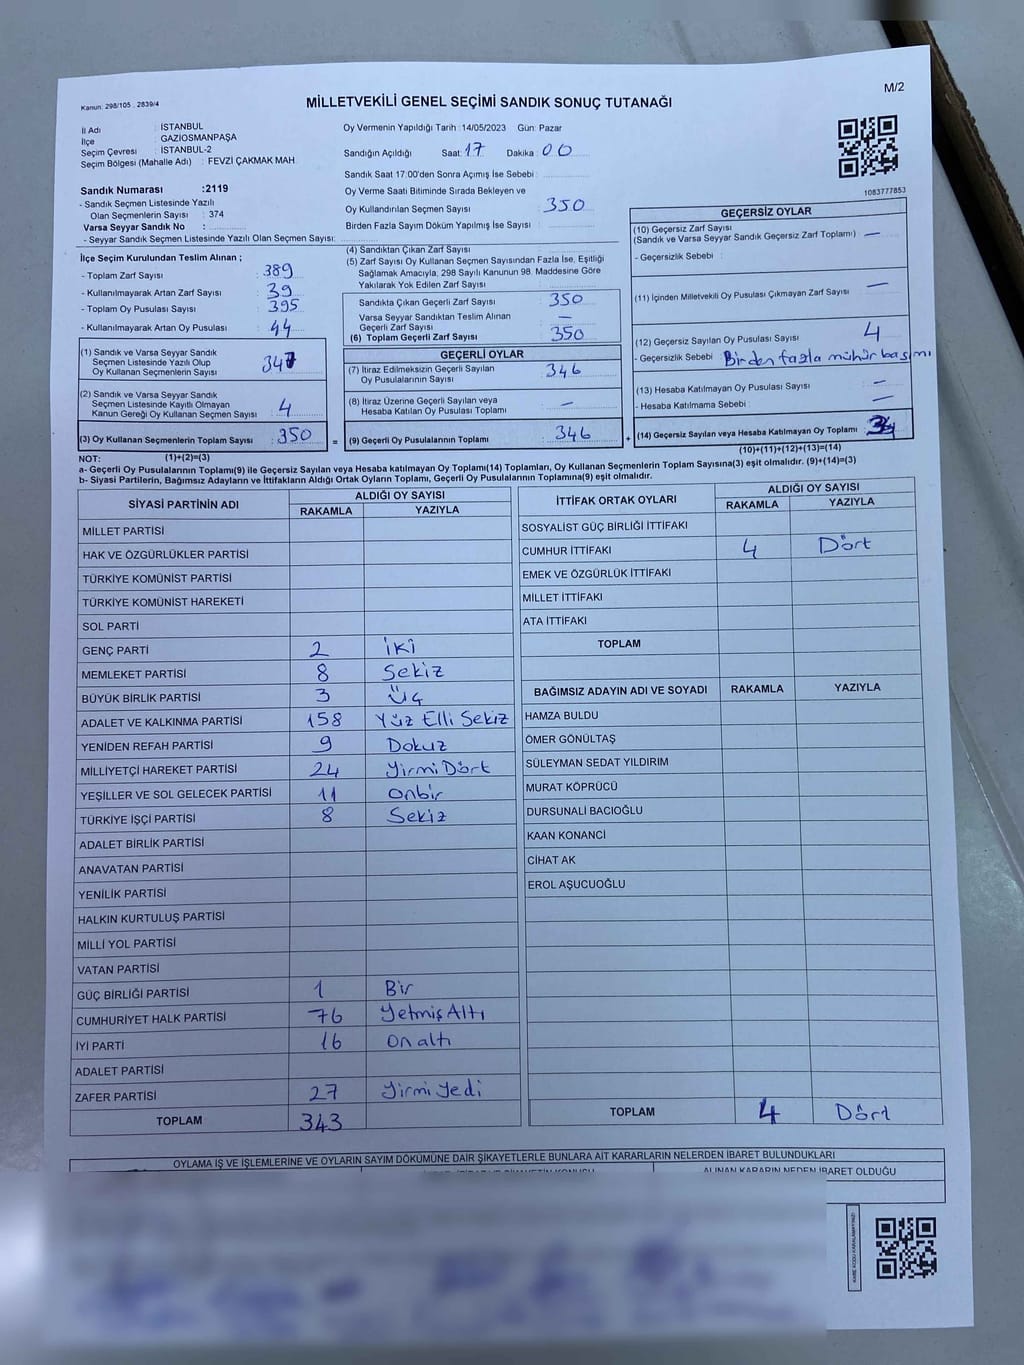 Kanun: 298/105 , 2839/4
M/2
MİLLETVEKİLİ GENEL SEÇİMİ SANDIK SONUÇ TUTANAĞI
İl Adı : İSTANBUL
İlçe : GAZİOSMANPAŞA
Seçim Çevresi : İSTANBUL-2
Seçim Bölgesi (Mahalle Adı) : FEVZİ ÇAKMAK MAH
Sandık Numarası :2119
- Sandık Seçmen Listesinde Yazılı
Olan Seçmenlerin Sayısı : 374
Varsa Seyyar Sandık No :
- Seyyar Sandık Seçmen Listesinde Yazılı Olan Seçmen Sayısı:
Oy Vermenin Yapıldığı Tarih :14/05/2023 Gün: Pazar
Sandığın Açıldığı Saat: 17 Dakika : 00
Sandık Saat 17:00'den Sonra Açımış İse Sebebi :
Oy Verme Saati Bitiminde Sırada Bekleyen ve
Oy Kullandırılan Seçmen Sayısı : 350
Birden Fazla Sayım Döküm Yapılmış İse Sayısı :
1083777853
İlçe Seçim Kurulundan Teslim Alınan ;
- Toplam Zarf Sayısı : 389
- Kullanılmayarak Artan Zarf Sayısı : 39
- Toplam Oy Pusulası Sayısı : 395
- Kullanılmayarak Artan Oy Pusulası : 44
(1) Sandık ve Varsa Seyyar Sandık
Seçmen Listesinde Yazılı Olup
Oy Kullanan Seçmenlerin Sayısı : 347
(2) Sandık ve Varsa Seyyar Sandık
Seçmen Listesinde Kayıtlı Olmayan
Kanun Gereği Oy Kullanan Seçmen Sayısı : 4
(3) Oy Kullanan Seçmenlerin Toplam Sayısı : 350
(4) Sandıktan Çıkan Zarf Sayısı :
(5) Zarf Sayısı Oy Kullanan Seçmen Sayısından Fazla İse, Eşitliği
Sağlamak Amacıyla, 298 Sayılı Kanunun 98. Maddesine Göre
Yakılarak Yok Edilen Zarf Sayısı :
Sandıkta Çıkan Geçerli Zarf Sayısı : 350
Varsa Seyyar Sandıktan Teslim Alınan
Geçerli Zarf Sayısı : —
(6) Toplam Geçerli Zarf Sayısı : 350
GEÇERLİ OYLAR
(7) İtiraz Edilmeksizin Geçerli Sayılan
Oy Pusulalarının Sayısı : 346
(8) İtiraz Üzerine Geçerli Sayılan veya
Hesaba Katılan Oy Pusulası Toplamı : —
= (9) Geçerli Oy Pusulalarının Toplamı : 346
GEÇERSİZ OYLAR
(10) Geçersiz Zarf Sayısı
(Sandık ve Varsa Seyyar Sandık Geçersiz Zarf Toplamı) : —
- Geçersizlik Sebebi :
(11) İçinden Milletvekili Oy Pusulası Çıkmayan Zarf Sayısı : —
(12) Geçersiz Sayılan Oy Pusulası Sayısı : 4
- Geçersizlik Sebebi : Birden fazla mühür basımı
(13) Hesaba Katılmayan Oy Pusulası Sayısı : —
- Hesaba Katılmama Sebebi : —
+ (14) Geçersiz Sayılan veya Hesaba Katılmayan Oy Toplamı :
NOT: (1)+(2)=(3)
(10)+(11)+(12)+(13)=(14)
a- Geçerli Oy Pusulalarının Toplamı(9) ile Geçersiz Sayılan veya Hesaba katılmayan Oy Toplamı(14) Toplamları, Oy Kullanan Seçmenlerin Toplam Sayısına(3) eşit olmalıdır. (9)+(14)=(3)
b- Siyasi Partilerin, Bağımsız Adayların ve İttifakların Aldığı Ortak Oyların Toplamı, Geçerli Oy Pusulalarının Toplamına(9) eşit olmalıdır.
SİYASİ PARTİNİN ADI ALDIĞI OY SAYISI
RAKAMLA YAZIYLA
MİLLET PARTİSİ
HAK VE ÖZGÜRLÜKLER PARTİSİ
TÜRKİYE KOMÜNİST PARTİSİ
TÜRKİYE KOMÜNİST HAREKETİ
SOL PARTİ
GENÇ PARTİ 2 iki
MEMLEKET PARTİSİ 8 Sekiz
BÜYÜK BİRLİK PARTİSİ 3 Üç
ADALET VE KALKINMA PARTİSİ 158 Yüz Elli Sekiz
YENİDEN REFAH PARTİSİ 9 Dokuz
MİLLİYETÇİ HAREKET PARTİSİ 24 Yirmi Dört
YEŞİLLER VE SOL GELECEK PARTİSİ 11 onbir
TÜRKİYE İŞÇİ PARTİSİ 8 Sekiz
ADALET BİRLİK PARTİSİ
ANAVATAN PARTİSİ
YENİLİK PARTİSİ
HALKIN KURTULUŞ PARTİSİ
MİLLİ YOL PARTİSİ
VATAN PARTİSİ
GÜÇ BİRLİĞİ PARTİSİ 1 Bir
CUMHURİYET HALK PARTİSİ 76 Yetmiş Altı
İYİ PARTİ 16 On altı
ADALET PARTİSİ
ZAFER PARTİSİ 27 Yirmi Yedi
TOPLAM 343
İTTİFAK ORTAK OYLARI ALDIĞI OY SAYISI
RAKAMLA YAZIYLA
SOSYALİST GÜÇ BİRLİĞİ İTTİFAKI
CUMHUR İTTİFAKI 4 Dört
EMEK VE ÖZGÜRLÜK İTTİFAKI
MİLLET İTTİFAKI
ATA İTTİFAKI
TOPLAM
BAĞIMSIZ ADAYIN ADI VE SOYADI RAKAMLA YAZIYLA
HAMZA BULDU
ÖMER GÖNÜLTAŞ
SÜLEYMAN SEDAT YILDIRIM
MURAT KÖPRÜCÜ
DURSUNALİ BACIOĞLU
KAAN KONANCİ
CİHAT AK
EROL AŞUCUOĞLU
TOPLAM 4 Dört
OYLAMA İŞ VE İŞLEMLERİNE VE OYLARIN SAYIM DÖKÜMÜNE DAİR ŞİKAYETLERLE BUNLARA AİT KARARLARIN NELERDEN İBARET BULUNDUKLARI
ALINAN KARARIN NEDEN İBARET OLDUĞU